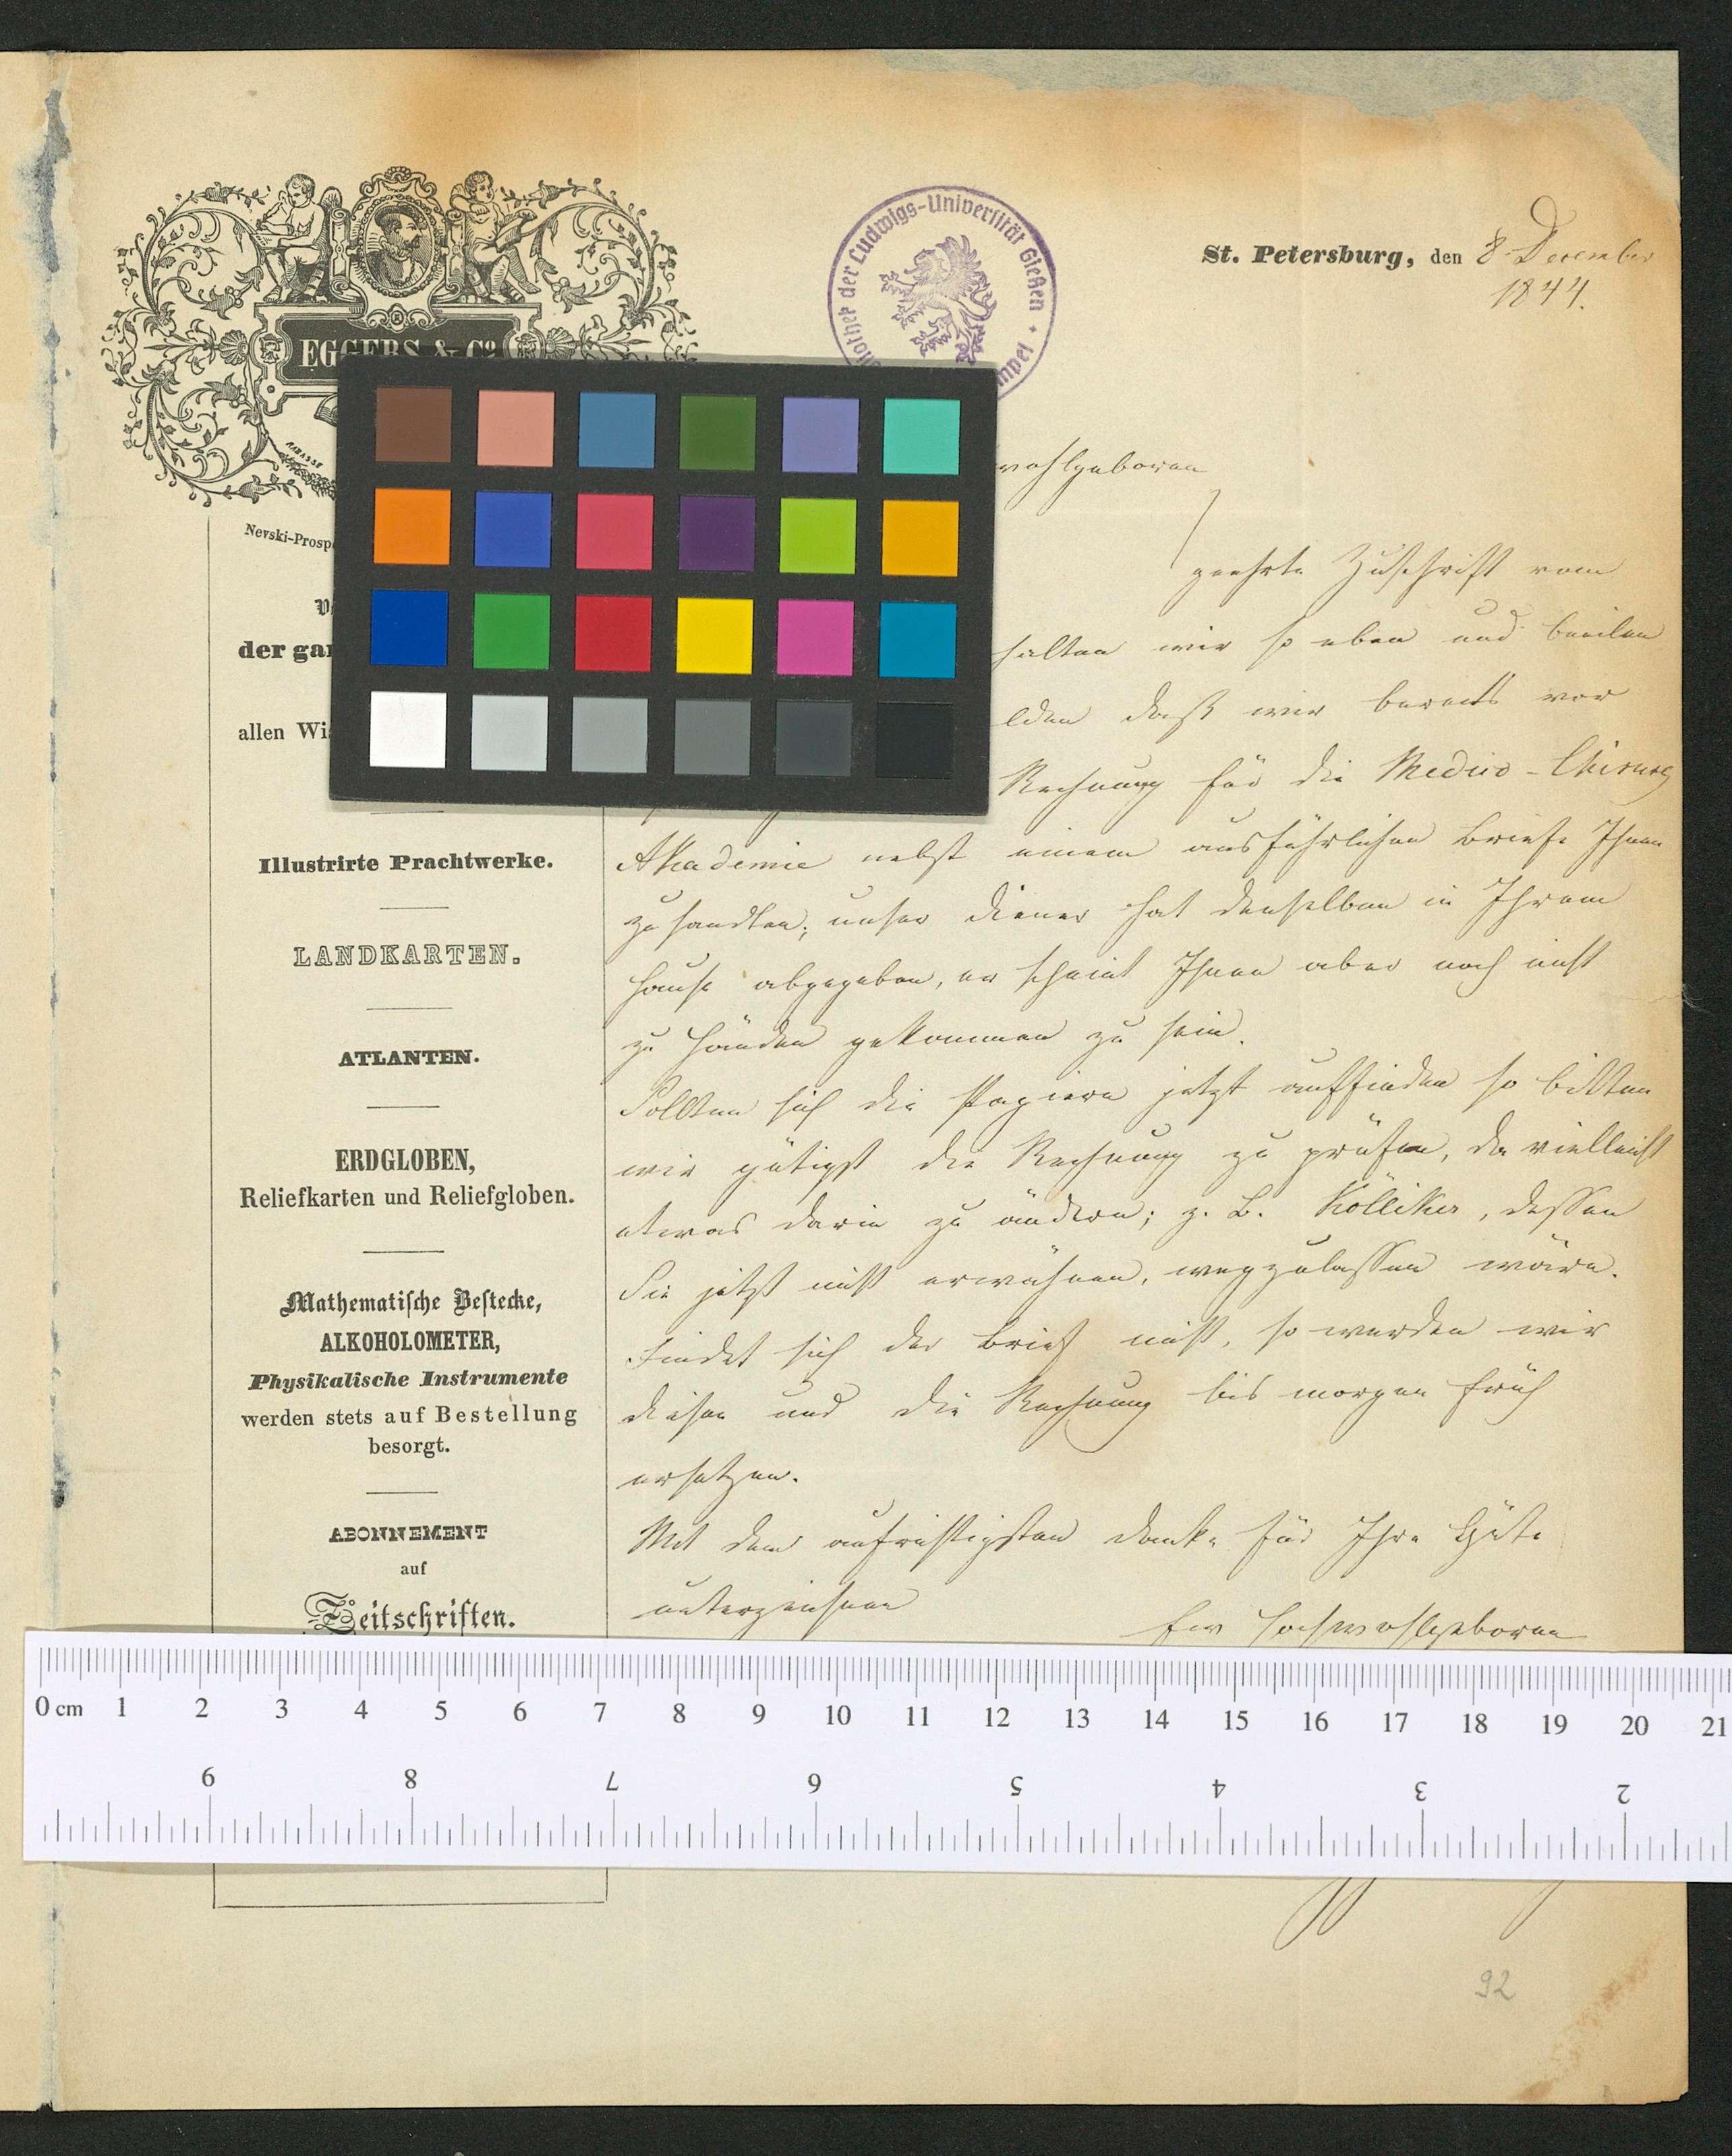 EGGERS & Cº
Bibliothek der Ludwigs-Universität Gießen
St. Petersburg, den 8 December
1844.
Nevski-Prosp
der gan
allen Wi
Illustrirte Prachtwerke.
LANDKARTEN.
ATLANTEN.
ERDGLOBEN,
Reliefkarten und Reliefgloben.
Mathematische Bestecke,
ALKOHOLOMETER,
Physikalische Instrumente
werden stets auf Bestellung
besorgt.
ABONNEMENT
auf
Zeitschriften.
wohlgeboren
geehrte Zuschrift vom
halten wir so eben und beeilen
lden daß wir bereits vor
Rechnung für die Medico-Chirurg
Akademie nebst einem ausführlichen Briefe Ihnen
zusandten; unser Diener hat denselben in Ihrem
Hause abgegeben, er scheint Ihnen aber noch nicht
zu Händen gekommen zu sein.
Sollten sich die Papiere jetzt auffinden so bitten
wir gütigst die Rechnung zu prüfen, da vielleicht
etwas darin zu ändern; z. B. Kölliker, dessen
Sie jetzt nicht erwähnen, wegzulassen wäre.
Findet sich der Brief nicht, so werden wir
diesen und die Rechnung bis morgen früh
ersetzen.
Mit dem aufrichtigsten Danke für Ihre Güte
unterzeichnen
Ew Hochwohlgeboren
0 cm 1 2 3 4 5 6 7 8 9 10 11 12 13 14 15 16 17 18 19 20 21
9 8 7 6 5 4 3 2
92